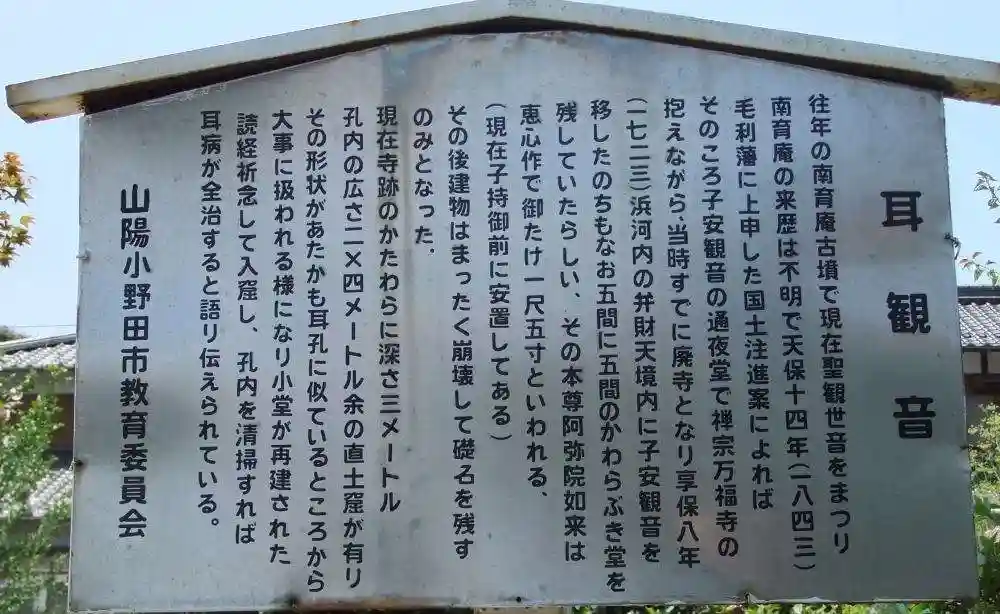 耳観音
往年の南育庵古墳で現在聖観世音をまつり
南育庵の来歴は不明で天保十四年(一八四三)
毛利藩に上申した国土注進案によれば
そのころ子安観音の通夜堂で禅宗万福寺の
抱えながら、当時すでに廃寺となり享保八年
(一七二三)浜河内の弁財天境内に子安観音を
移したのちもなお五間に五間のかわらぶき堂を
残していたらしい、その本尊阿弥院如来は
恵心作で御たけ一尺五寸といわれる、
(現在子持御前に安置してある)
その後建物はまったく崩壊して礎名を残す
のみとなった.
現在寺跡のかたわらに深さ三メートル
孔内の広さ二×四メートル余の直土窟が有り
その形状があたかも耳孔に似ているところから
大事に扱われる様になり小堂が再建された
読経祈念して入窟し、孔内を清掃すれば
耳病が全治すると語り伝えられている。
山陽小野田市教育委員会